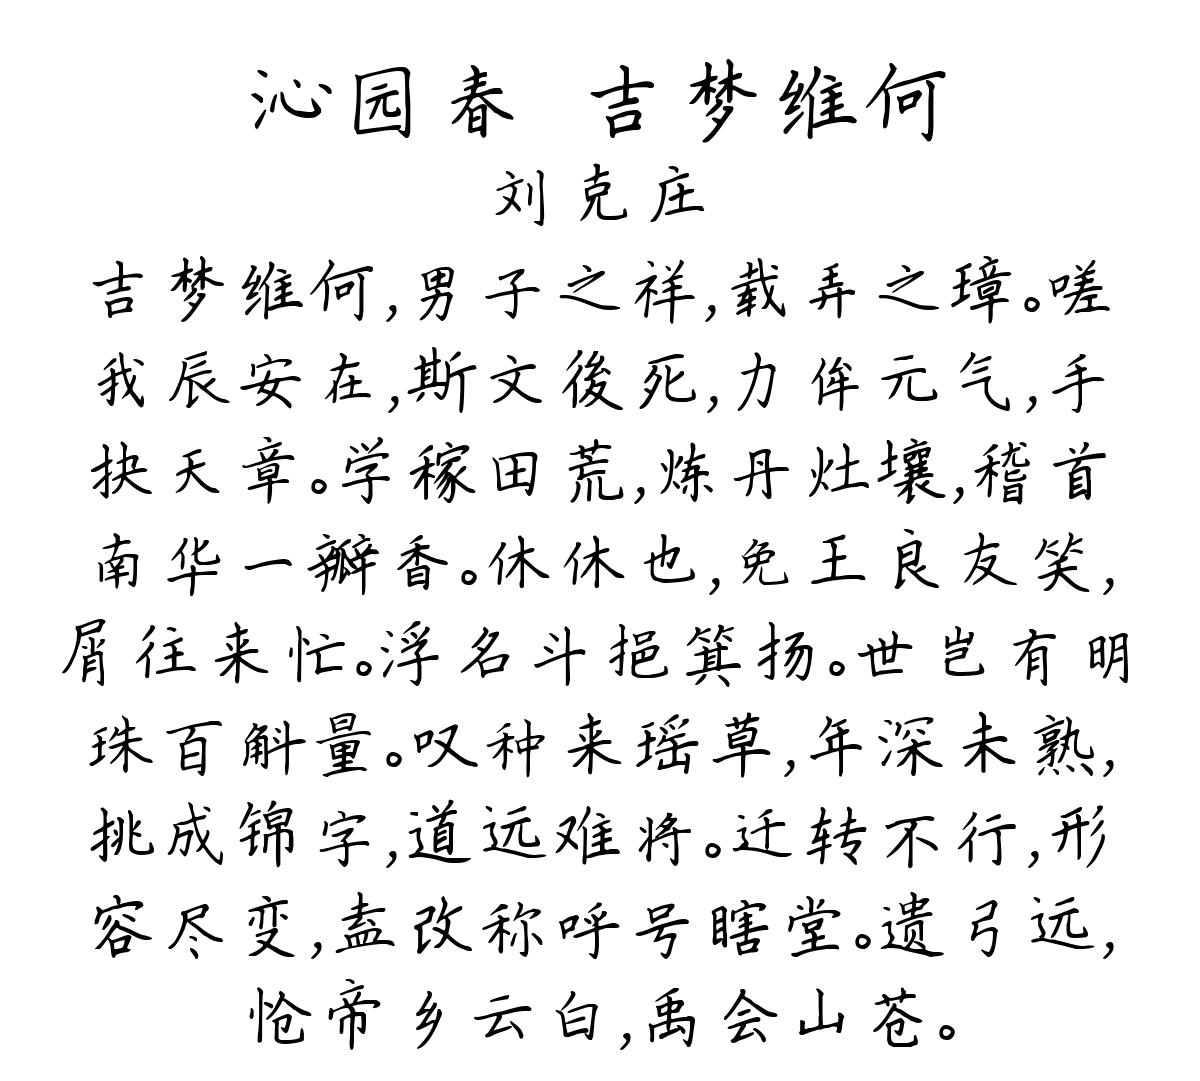 沁园春 吉梦维何
刘克庄
吉梦维何,男子之祥,载弄之璋。嗟
我辰安在,斯文後死,力侔元气,手
抉天章。学稼田荒,炼丹灶壤,稽首
南华一瓣香。休休也,免王良友笑,
屑往来忙。浮名斗挹箕扬。世岂有明
珠百斛量。叹种来瑶草,年深未熟,
挑成锦字,道远难将。迁转不行,形
容尽变,盍改称呼号瞎堂。遗弓远,
怆帝乡云白,禹会山苍。